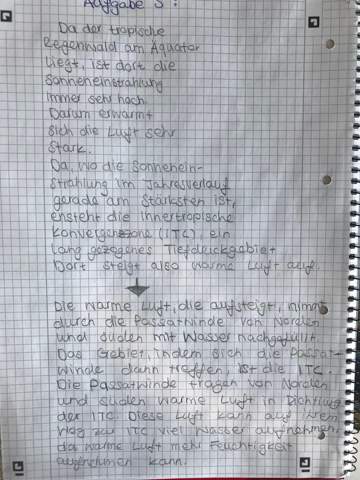 Aufgabe 3:
Da der tropische
Regenwald am Äquator
liegt, ist dort die
Sonneneinstrahlung
immer sehr hoch.
Darum erwärmt
sich die Luft sehr
stark.
Da, wo die Sonnenein-
strahlung im Jahresverlauf
gerade am stärksten ist,
ensteht die innertropische
Konvergenzzone (ITC), ein
lang gezogenes Tiefdruckgebiet.
Dort steigt also warme Luft auf.
Die warme Luft, die aufsteigt, nimmt
durch die Passatwinde von Norden
und Süden mit Wasser nachgefüllt.
Das Gebiet, indem sich die Passat-
winde dann treffen, ist die ITC.
Die Passatwinde tragen von Norden
und Süden warme Luft in Richtung
der ITC. Diese Luft kann auf ihrem
Weg zu ITC viel Wasser aufnehmen,
da warme Luft mehr Feuchtigkeit
aufnehmen kann.